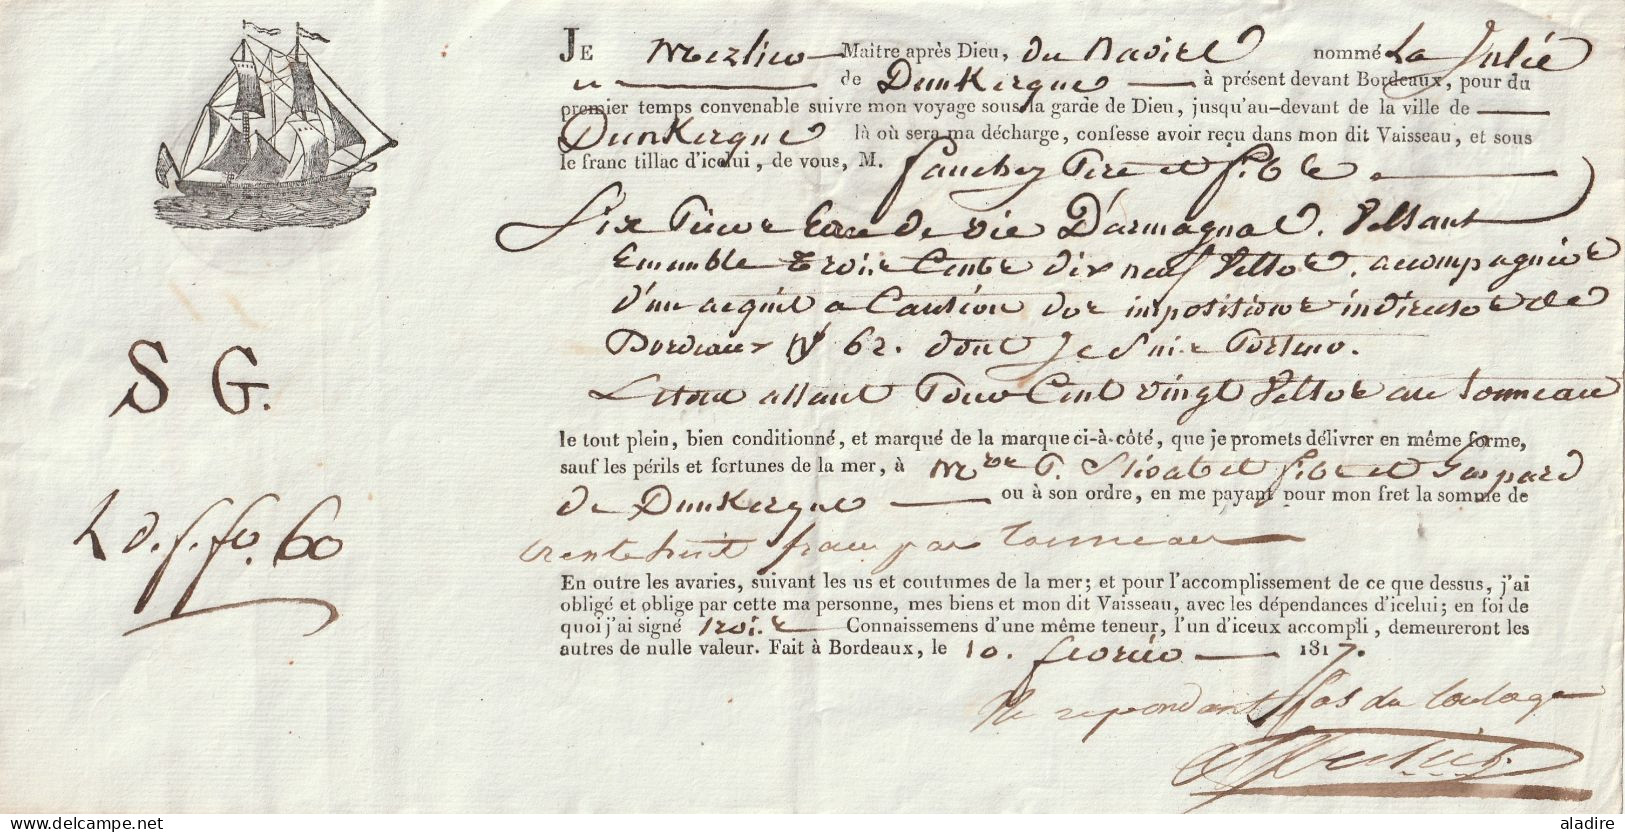 JE Merlieu Maître après Dieu, du Navire nommé La Julie
de DunKerque à présent devant Bordeaux, pour du
premier temps convenable suivre mon voyage sous la garde de Dieu, jusqu'au-devant de la ville de
DunKerque là où sera ma décharge, confesse avoir reçu dans mon dit Vaisseau, et sous
le franc tillac d'icelui, de vous, M. Sanchez Pere et fils
Six Pieces Eau de vie D'armagnac. Veltant
Ensemble Trois Cents dix neuf Veltes. accompagnées
d'un acquit a Caution des impositions indirectes de
Bordeaux N° 62. dont Je Suis Porteur.
Le tout allant Pour Cent vingt Veltes au Tonneau
S G.
le tout plein, bien conditionné, et marqué de la marque ci-à-côté, que je promets délivrer en même forme,
sauf les périls et fortunes de la mer, à Mrs P. fils et Gaspard
de DunKerque ou à son ordre, en me payant pour mon fret la somme de
trente huit francs par Tonneau
60
En outre les avaries, suivant les us et coutumes de la mer; et pour l'accomplissement de ce que dessus, j'ai
obligé et oblige par cette ma personne, mes biens et mon dit Vaisseau, avec les dépendances d'icelui; en foi de
quoi j'ai signé trois Connaissemens d'une même teneur, l'un d'iceux accompli, demeureront les
autres de nulle valeur. Fait à Bordeaux, le 10. fevrier 1817.
Ne repondant pas du Coulage
delcampe.net
aladire